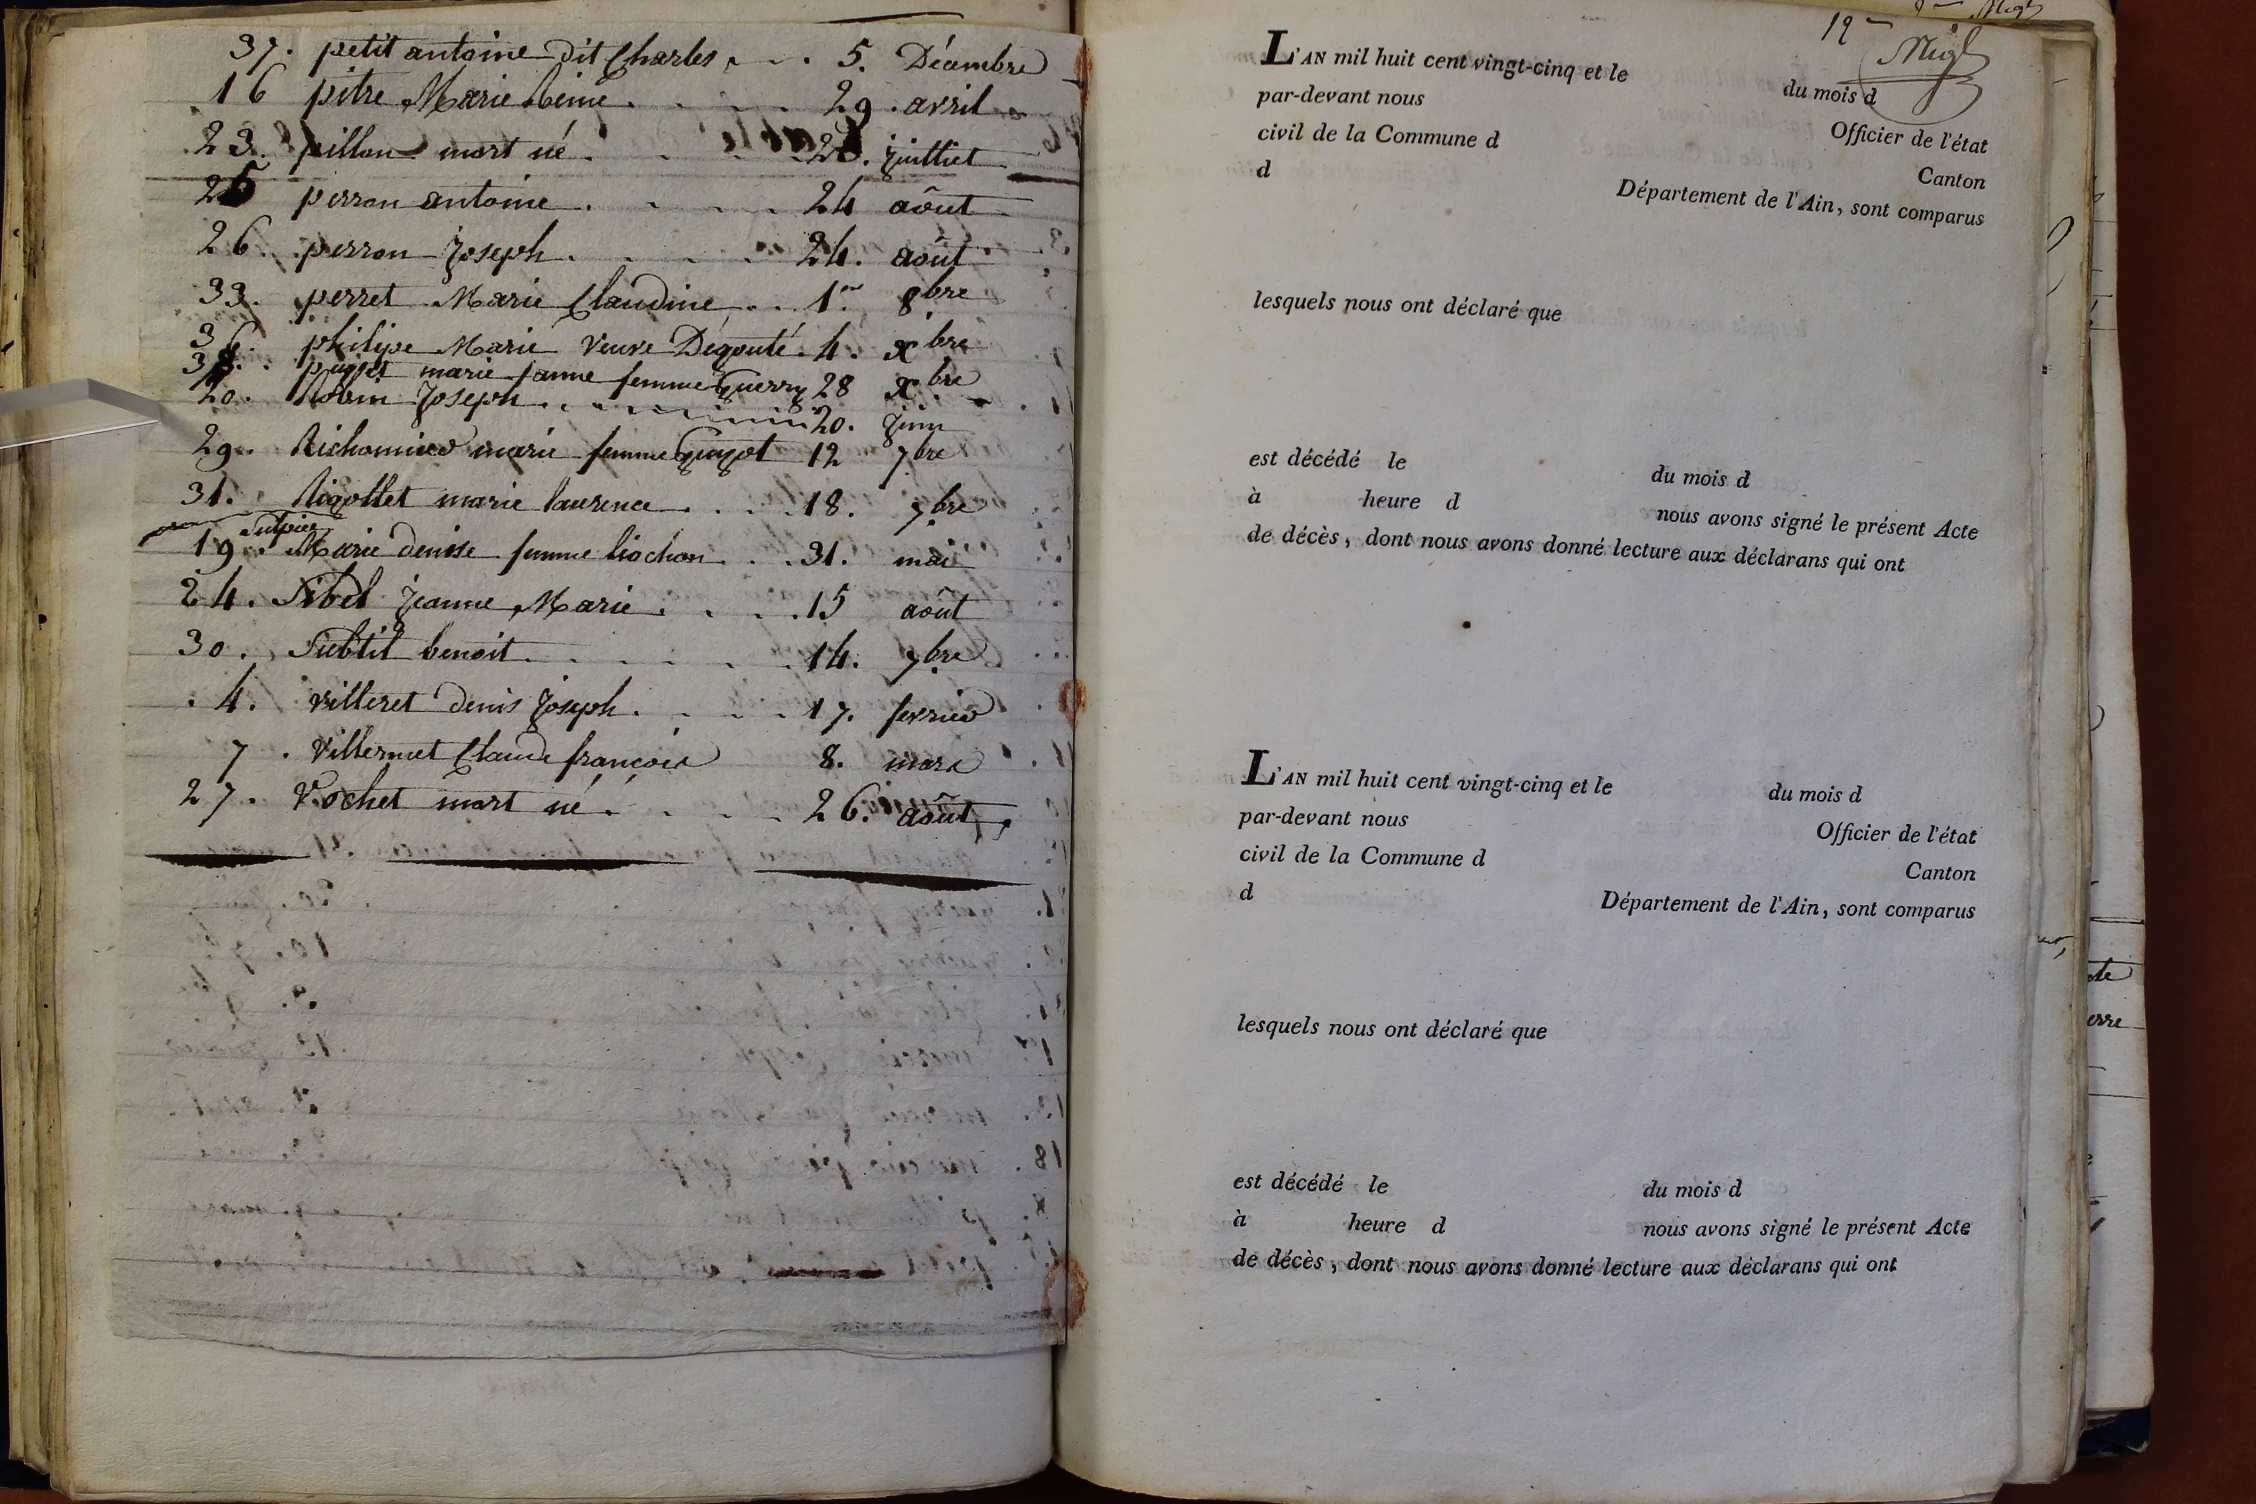 37. petit antoine dit Charles 5. Décembre
16 pitre Marie Reine 29. avril
23. pillon mort né juilliet
25 perron antoine 24 août
26. perron Joseph 24. août
33. perret Marie Claudine 1er 8bre
36. philipe Marie Veuve Dégouté. 4. xbre
38. puget marie janne femme Guerry 28 xbre
20. Robin Joseph 20. Juin
29. Richonnier marie femme Guyot 12 7bre
31. Rigollet marie laurence 18. 7bre
Sulpice
19. Marie denise femme liochon 31. mai
24. Sibel Jeanne Marie 15 août
30. Subtil benoit 14. 7bre
4. villeret denis Joseph 17. fevrier
7. Villermet Claude françois 8. mars
27. Vochet mort né 26. août
12me
L'AN mil huit cent vingt-cinq et le du mois d
par-devant nous Officier de l'état
civil de la Commune d Canton
d Département de l'Ain, sont comparus
lesquels nous ont déclaré que
est décédé le du mois d
à heure d nous avons signé le présent Acte
de décès, dont nous avons donné lecture aux déclarans qui ont
L'AN mil huit cent vingt-cinq et le du mois d
par-devant nous Officier de l'état
civil de la Commune d Canton
d Département de l'Ain, sont comparus
lesquels nous ont déclaré que
est décédé le du mois d
à heure d nous avons signé le présent Acte
de décès, dont nous avons donné lecture aux déclarans qui ont